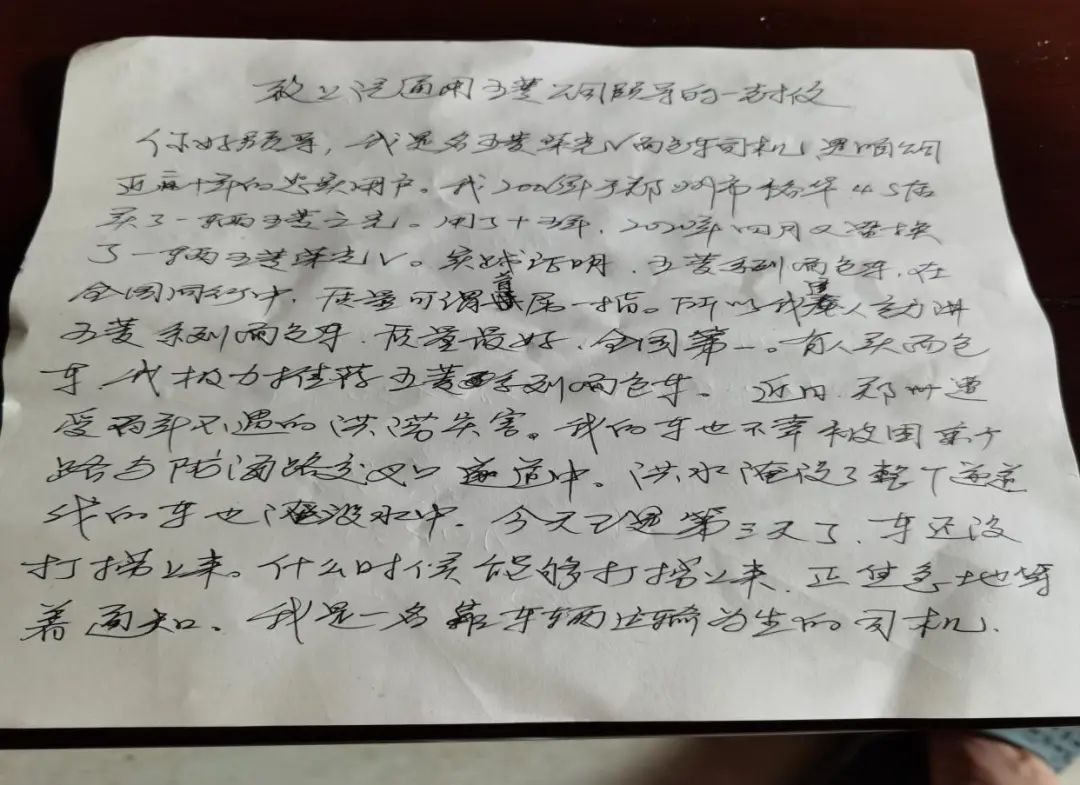 致上汽通用五菱公司领导的一封信
你好领导，我是名五菱荣光V面包车司机，是咱公司
近二十年的忠实用户。我2006年于郑州市裕华4S店
买了一辆五菱之光。用了十五年，2020年四月又置换
了一辆五菱荣光V。实践证明，五菱系列面包车，在
全国同行中，质量可谓首屈一指。所以我逢人主动讲
五菱系列面包车，质量最好，全国第一。有人买面包
车，我极力推荐五菱系列面包车。近日，郑州遭
受百年不遇的洪涝灾害。我的车也不幸被困
路与防汛路交叉口隧道中。洪水淹没了整个隧道
我的车也淹没水中，今天已是第三天了，车还没
打捞上来。什么时候能够打捞上来，正焦急地等
着通知。我是一名靠车辆运输为生的司机，